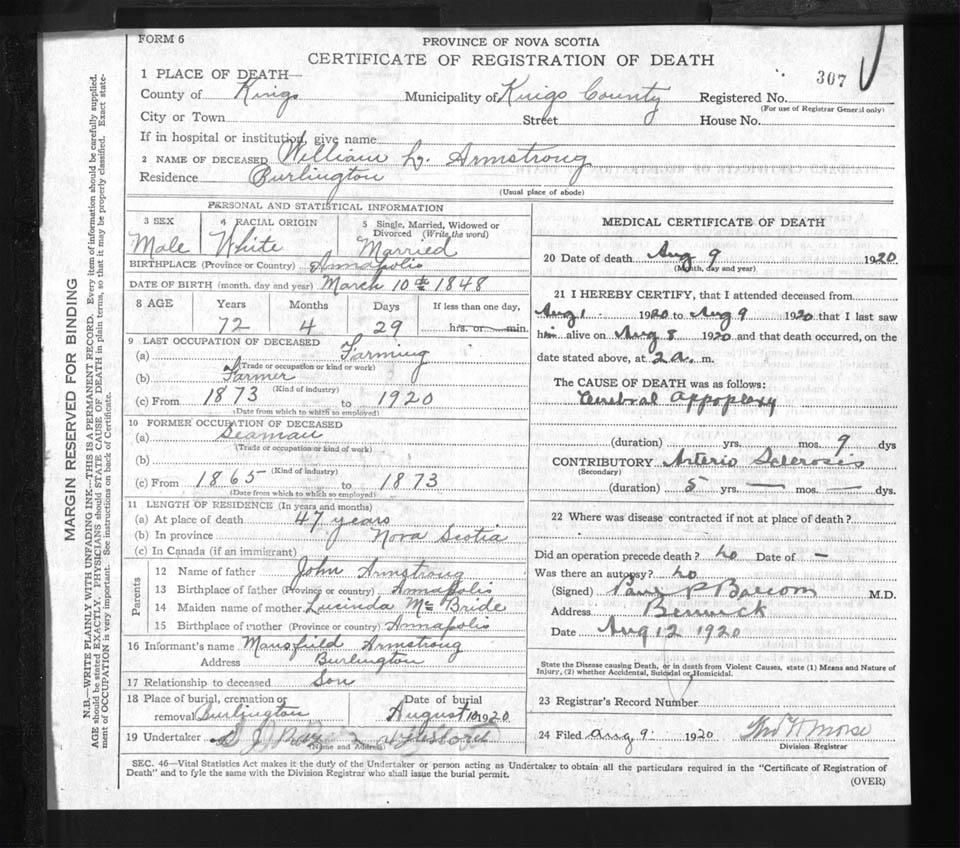 FORM 6
PROVINCE OF NOVA SCOTIA
CERTIFICATE OF REGISTRATION OF DEATH
307
1 PLACE OF DEATH—
County of Kings Municipality of Kings County Registered No.
(For use of Registrar General only)
City or Town Street House No.
If in hospital or institution, give name
2 NAME OF DECEASED William L. Armstrong
Residence Burlington
(Usual place of abode)
PERSONAL AND STATISTICAL INFORMATION
3 SEX Male
4 RACIAL ORIGIN White
5 Single, Married, Widowed or Divorced (Write the word) Married
BIRTHPLACE (Province or Country) Annapolis
DATE OF BIRTH (month, day and year) March 10th 1848
8 AGE Years Months Days If less than one day,
72 4 29 hrs. or min.
9 LAST OCCUPATION OF DECEASED
(a) Farming
(Trade or occupation or kind of work)
(b) Farmer
(Kind of industry)
(c) From 1873 to 1920
(Date from which to which so employed)
10 FORMER OCCUPATION OF DECEASED
(a) Seaman
(Trade or occupation or kind of work)
(b)
(Kind of industry)
(c) From 1865 to 1873
(Date from which to which so employed)
11 LENGTH OF RESIDENCE (In years and months)
(a) At place of death 47 years
(b) In province Nova Scotia
(c) In Canada (if an immigrant)
Parents
12 Name of father John Armstrong
13 Birthplace of father (Province or country) Annapolis
14 Maiden name of mother Lucinda McBride
15 Birthplace of mother (Province or country) Annapolis
16 Informant's name Mansfield Armstrong
Address Burlington
17 Relationship to deceased Son
18 Place of burial, cremation or removal Burlington
Date of burial August 10 1920
19 Undertaker S J
(Name and Address)
MEDICAL CERTIFICATE OF DEATH
20 Date of death Aug 9 1920
(Month, day and year)
21 I HEREBY CERTIFY, that I attended deceased from
Aug 1 1920 to Aug 9 1920 that I last saw
him alive on Aug 8 1920 and that death occurred, on the
date stated above, at 2 a. m.
The CAUSE OF DEATH was as follows:
Cerebral Appoplexy
(duration) yrs. mos. 9 dys
CONTRIBUTORY Arterio Sclerosis
(Secondary)
(duration) 5 yrs. — mos. — dys.
22 Where was disease contracted if not at place of death?
Did an operation precede death? no Date of —
Was there an autopsy? no
(Signed) M.D.
Address Berwick
Date Aug 12 1920
State the Disease causing Death, or in death from Violent Causes, state (1) Means and Nature of
Injury, (2) whether Accidental, Suicidal or Homicidal.
23 Registrar's Record Number
24 Filed Aug 9 1920 Morse
Division Registrar
SEC. 46—Vital Statistics Act makes it the duty of the Undertaker or person acting as Undertaker to obtain all the particulars required in the "Certificate of Registration of
Death" and to fyle the same with the Division Registrar who shall issue the burial permit.
(OVER)
MARGIN RESERVED FOR BINDING
N.B.—WRITE PLAINLY WITH UNFADING INK—THIS IS A PERMANENT RECORD. Every item of information should be carefully supplied.
AGE should be stated EXACTLY. PHYSICIANS should STATE CAUSE OF DEATH in plain terms, so that it may be properly classified. Exact state-
ment of OCCUPATION is very important. See instructions on back of Certificate.